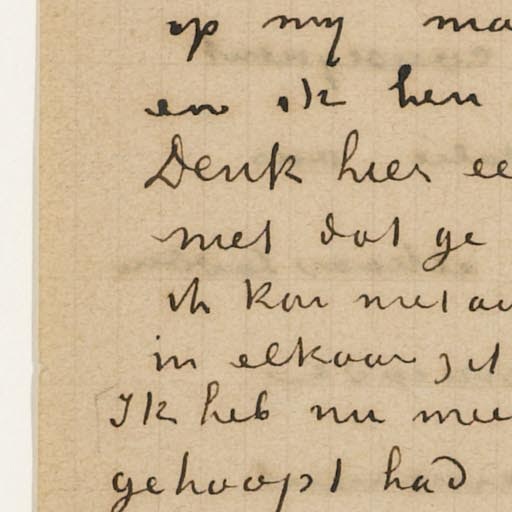 op my
en ik ben
Denk hier ee
niet dat ge
ik kon niet
in elkaar zit
Ik heb nu
gehoopt had